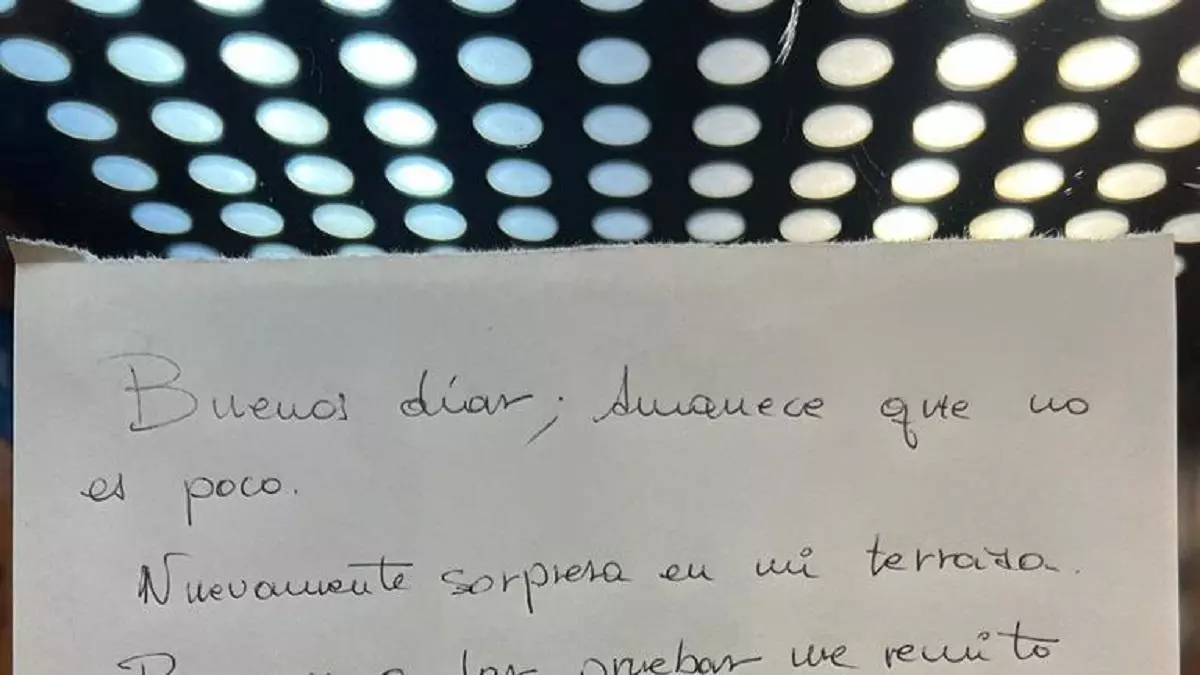 Buenos días; Amanece que no
es poco.
Nuevamente sorpresa en mi terraza.
las pruebas me remito